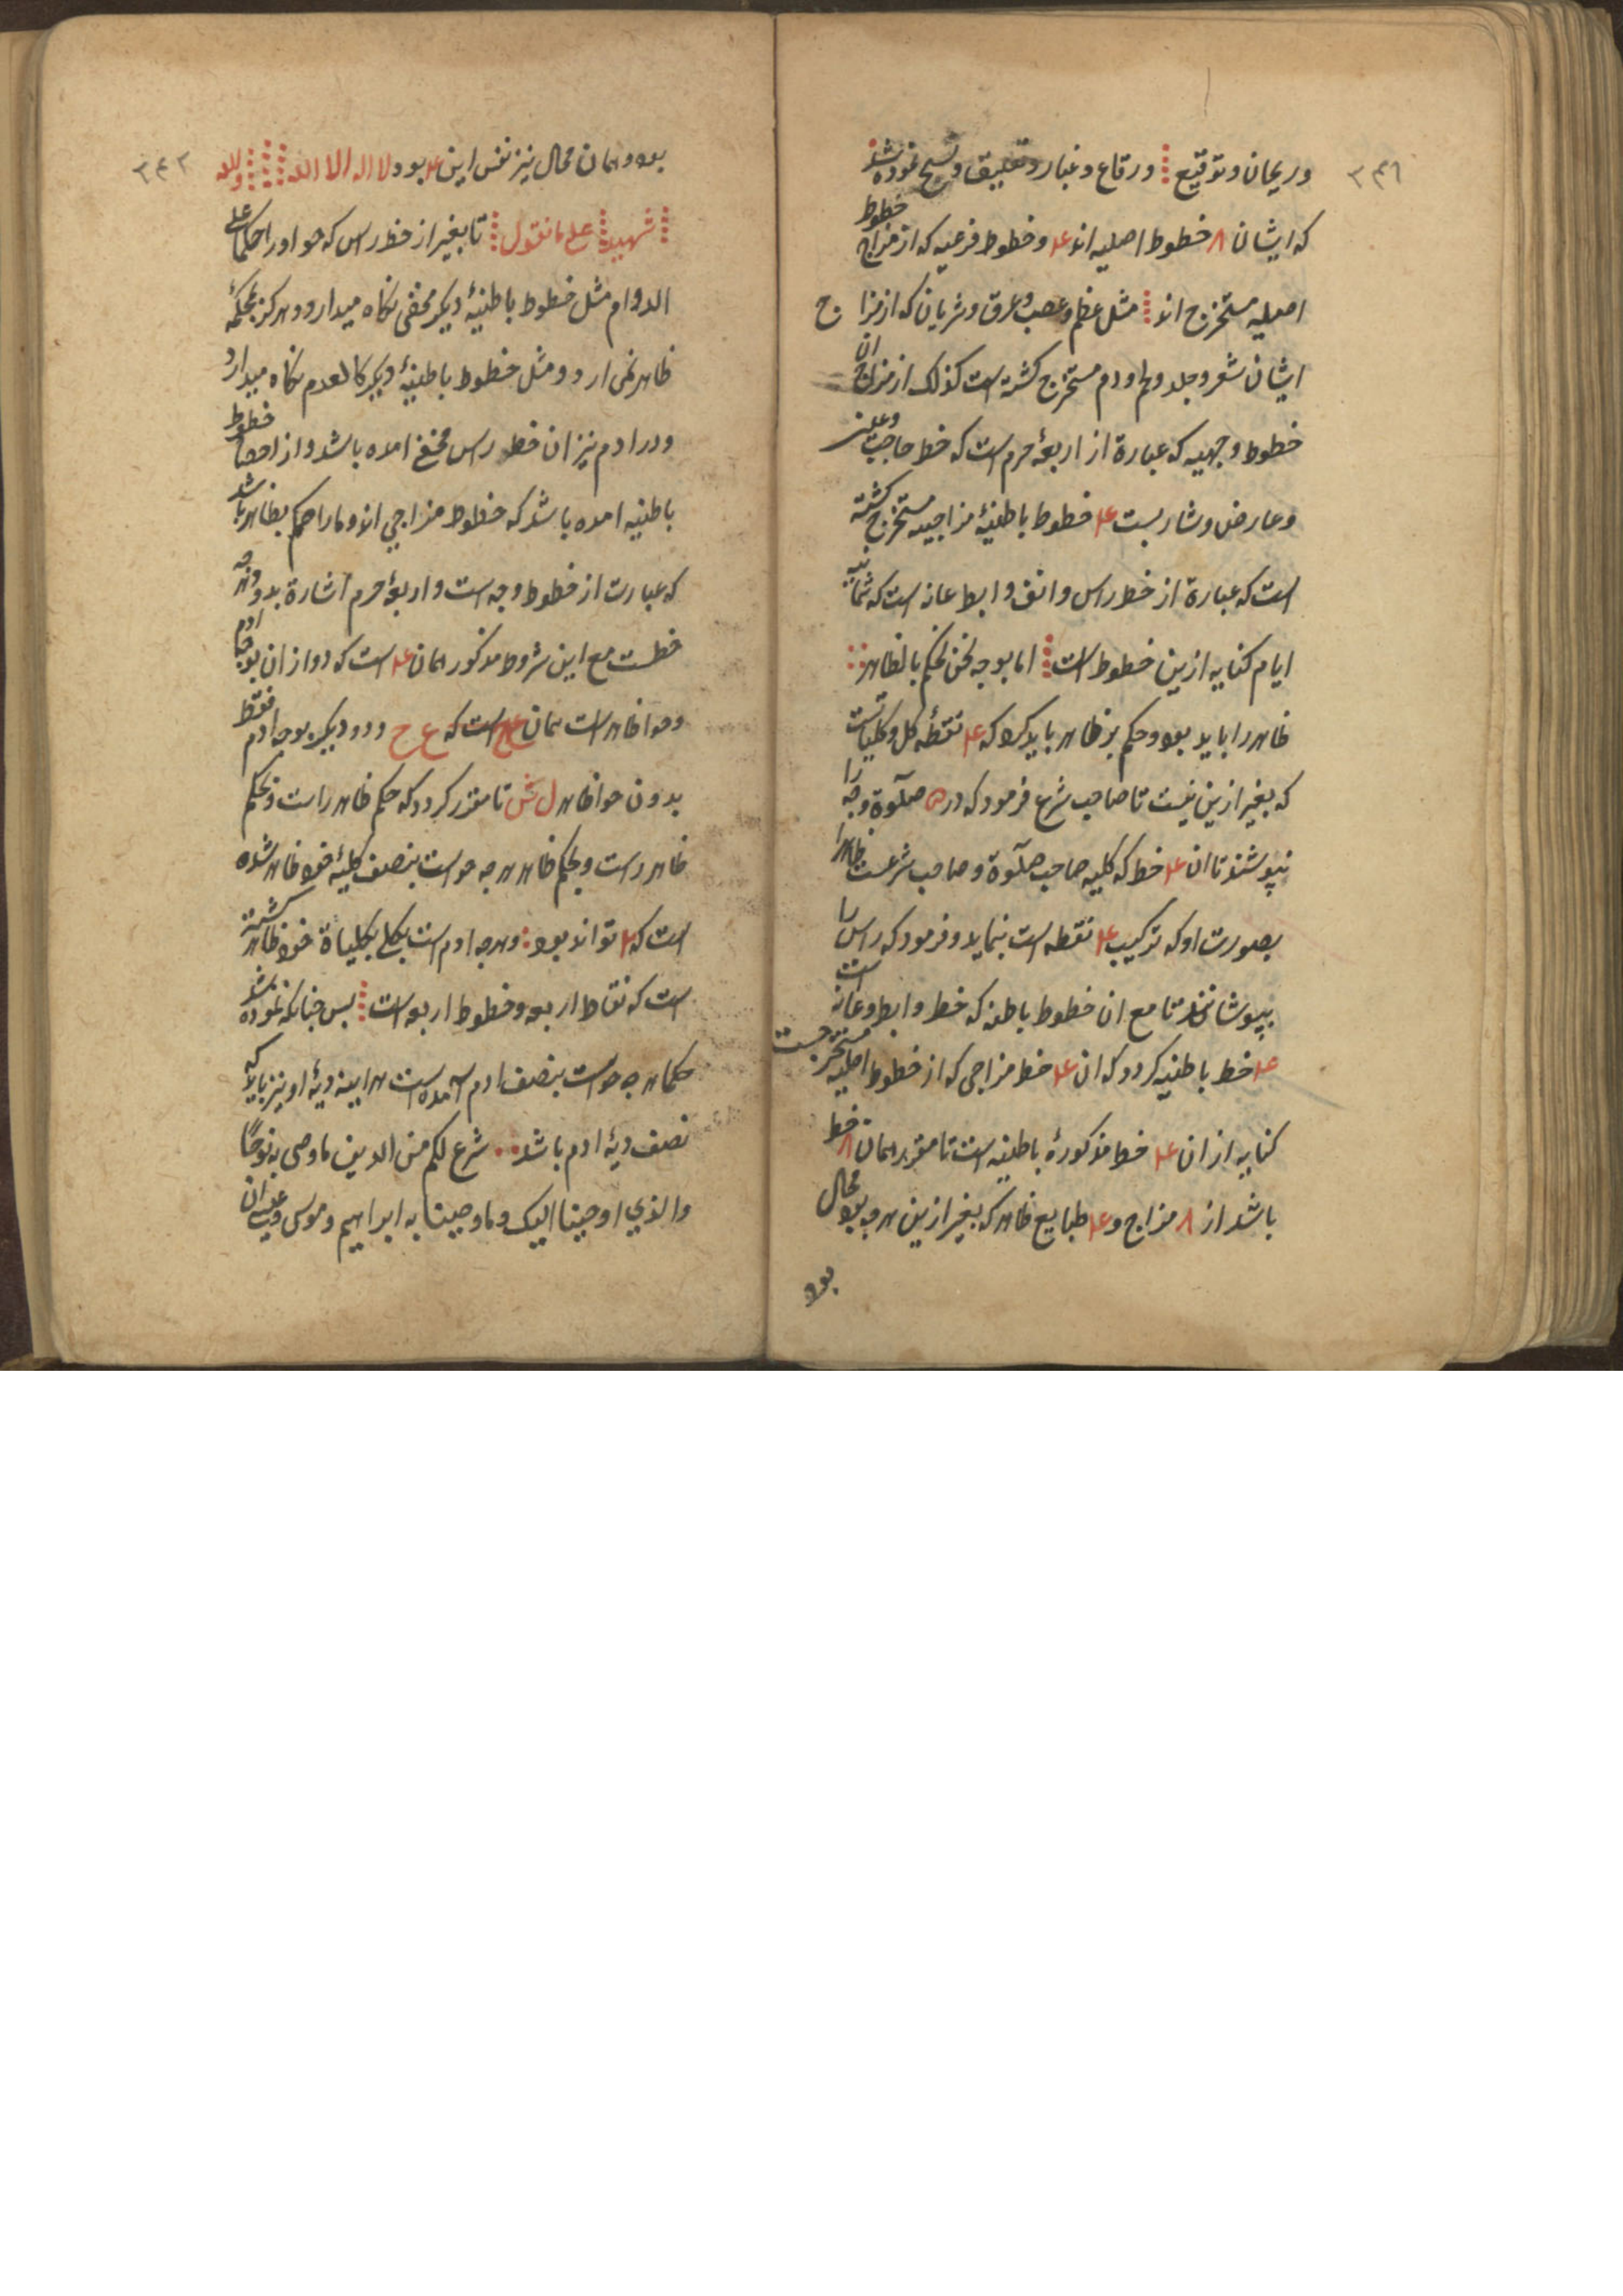 ٣٤١
وریحان وتوقیع ⁝ ورقاع وغبار وتعلیق ونسخ نموده شد
که ایشان ٨ خطوط اصلیه اند عد وخطوط فرعیه که از مزاج خطوط
اصلیه مستخرج اند ⁝ مثل عظم وعصب وعرق وشریان که از مزاج
ایشان شعر وجلد ولحم ودم مستخرج کشته است کذلک از مزاج ان
خطوط وجهیه که عبارة از اربعۀ حرم است که خط حاجب وعلین
وعارض وشاربست عد خطوط باطنیۀ مزاجیه مستخرج کشته
است که عبارة از خط راس وانف وابط عانه است که ثمانیه
ایام کنایه ازین خطوط است ⁝ اما بوجه نحن نحکم بالظاهر
ظاهر را باید بود وحکم بر ظاهر باید کرد که عد نقطۀ کل وکلیاتست
که بغیر ازین نیست تا صاحب شرع فرمود که در صلوة وجه را
نپوشند تا ان عد خط که کلیه صاحب صلوة وصاحب شرعست ظاهرا
بصورت او که ترکیب عد نقطه است بنماید وفرمود که راس را
بپوشانند تا مع ان خطوط باطنه که خط وابط وعانه است
عد خط باطنیه کردد که ان عد خط مزاجی که از خطوط اصلیه مستخرجست
کنایه از ان عد خط مذکورۀ باطنیه است تا مقرر همان ٨ خط
باشد از ٨ مزاج وعد طبایع ظاهر که بغیر ازین هرچه بود محال
بود
٣٤٢
بود وهمان محال نیز نفس این عد بود لا اله الا الله ⁝⁝⁝ والله
⁝ شهید ⁝ علی ما نقول ⁝ تا بغیر از خط راس که حوا او را حکما علی
الدوام مثل خطوط باطنیۀ دیکر مخفی نکاه میدارد وهرکز بحکمۀ
ظاهر نمی ارد ومثل خطوط باطنیۀ دیکر کالعدم نکاه میدارد
ودر ادم نیز ان خط راس مخفی امده باشد واز احصا خطوط
باطنیه امده باشد که خطوط مزاجی اند وما را حکم بظاهر باشد
که عبارت از خطوط وجه است واربعۀ حرم اشارة بدو وجه
خطست مع این شروط مذکور همان عد است که دو از ان بوجه ادم
وحوا ظاهر است همان عد است که ع ح ودو دیکر بوجه ادم فقط
بدون حوا ظاهر ل ش تا مقرر کردد که حکم ظاهر راست وبحکم
ظاهر راست وبحکم ظاهر هرچه حواست بنصف کلیۀ خود ظاهر شده
است که ٢ تواند بود : وهرچه ادم است بکلی بکلیاة خود ظاهر کشته
است که نقاط اربعه وخطوط اربعه است ⁝ پس چنانکه نموده شد
حکما هرچه حواست بنصف ادم آمده است هر اینه دیۀ او نیز باید که
نصف دیۀ ادم باشد .. شرع لکم من الدین ما وصی به نوحا
والذی اوحینا الیک وما وصینا به ابراهیم وموسی وعیسی ان